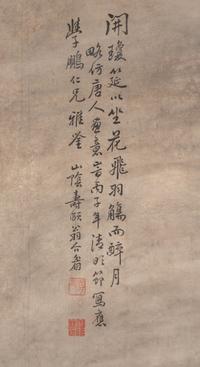 開瓊筵以坐花飛羽觴而醉月
略仿唐人畫意時丙子年清明節寫應
學鵬仁兄雅鑒 山陰壽頤翁合者